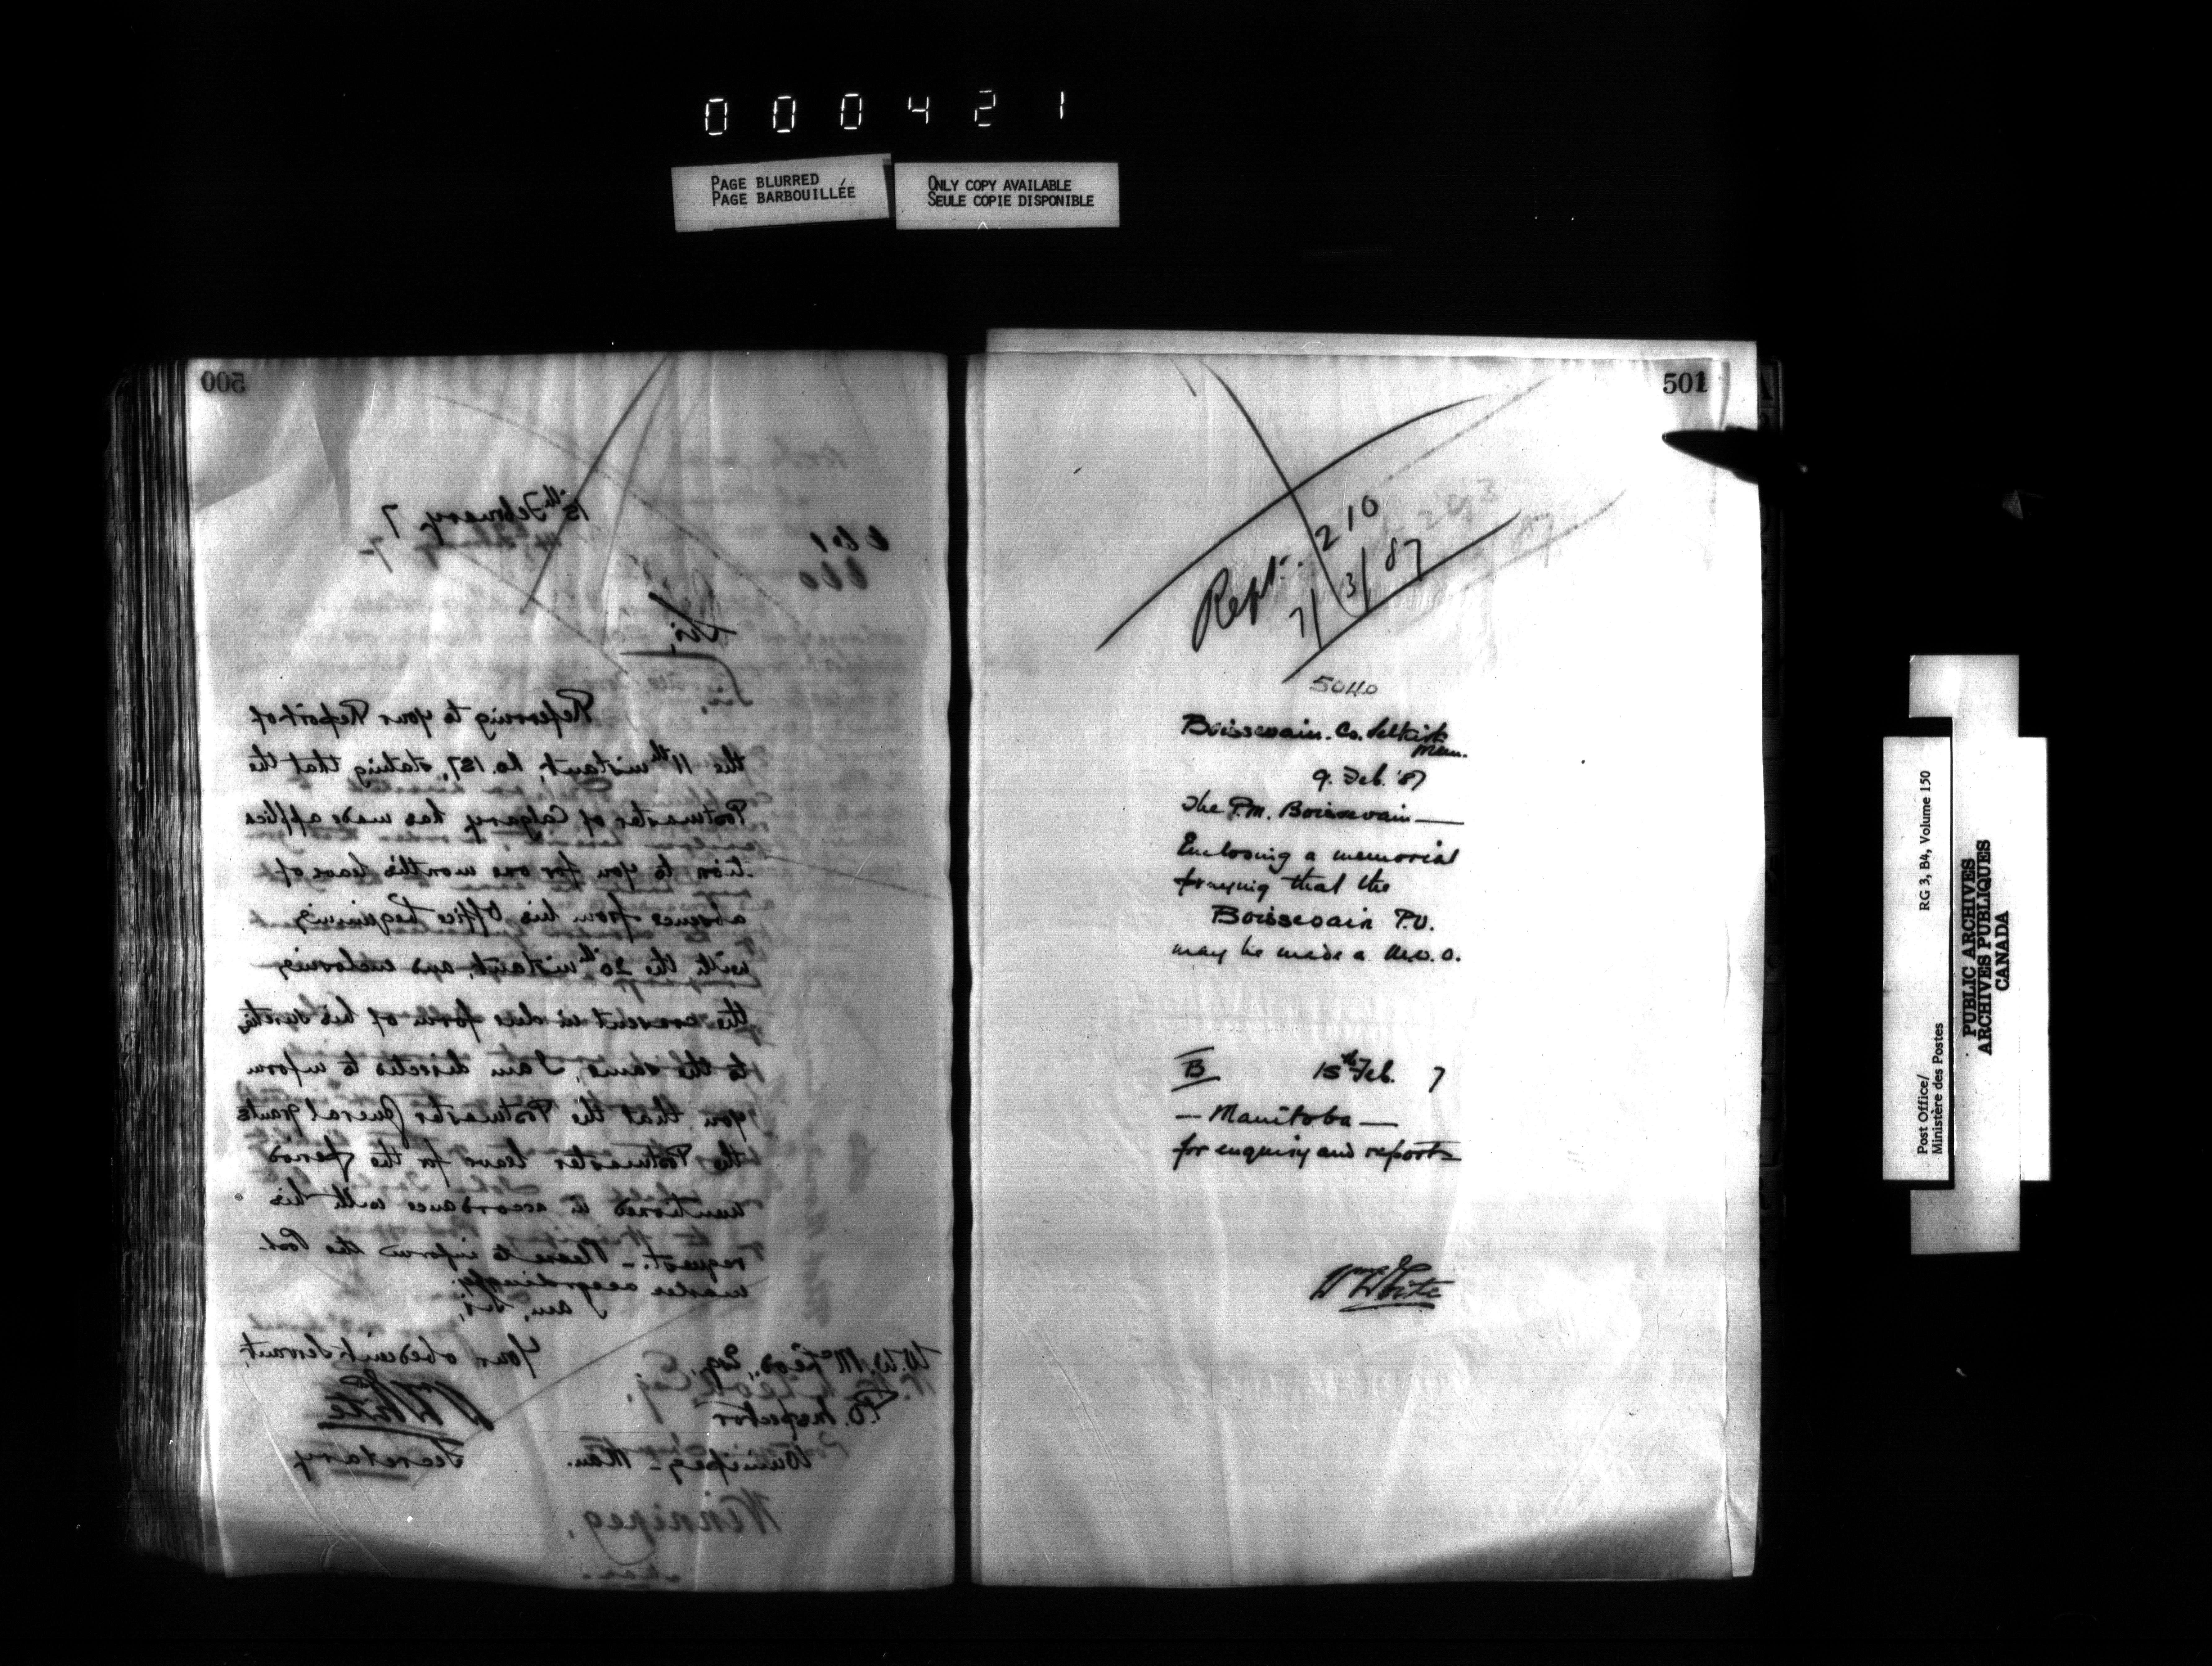 000421
PAGE BLURRED
PAGE BARBOUILLÉE
ONLY COPY AVAILABLE
SEULE COPIE DISPONIBLE
500
15th February 7
Sir,
Referring to your Report of
the 11th instant, No. 187, stating that the
Postmaster of Calgary has made applica
tion to you for one months leave of
absence from his Office beginning
with the 20th instant, and enclosing
the consent in due form of his sureties
to the same, I am directed to inform
you that the Postmaster General grants
the Postmaster leave for the period
mentioned in accordance with his
request. – Please to inform the Post
master accordingly.
I am, Sir,
Your obedient Servant,
WWhite
Secretary
W. W. McLeod, Esq.
P.O. Inspector
Winnipeg – Man.
Winnipeg,
501
Rept. 210
7/3/87
5040
Boissevain. Co. Selkirk
Man.
9. Feb. '87
The P.M. Boissevain —
Enclosing a memorial
praying that the
Boissevain P.O.
may be made a M.O.O.
B 15th Feb. 7
— Manitoba —
for enquiry and report
WWhite
Post Office/
Ministère des Postes
RG 3, B4, Volume 150
PUBLIC ARCHIVES
ARCHIVES PUBLIQUES
CANADA